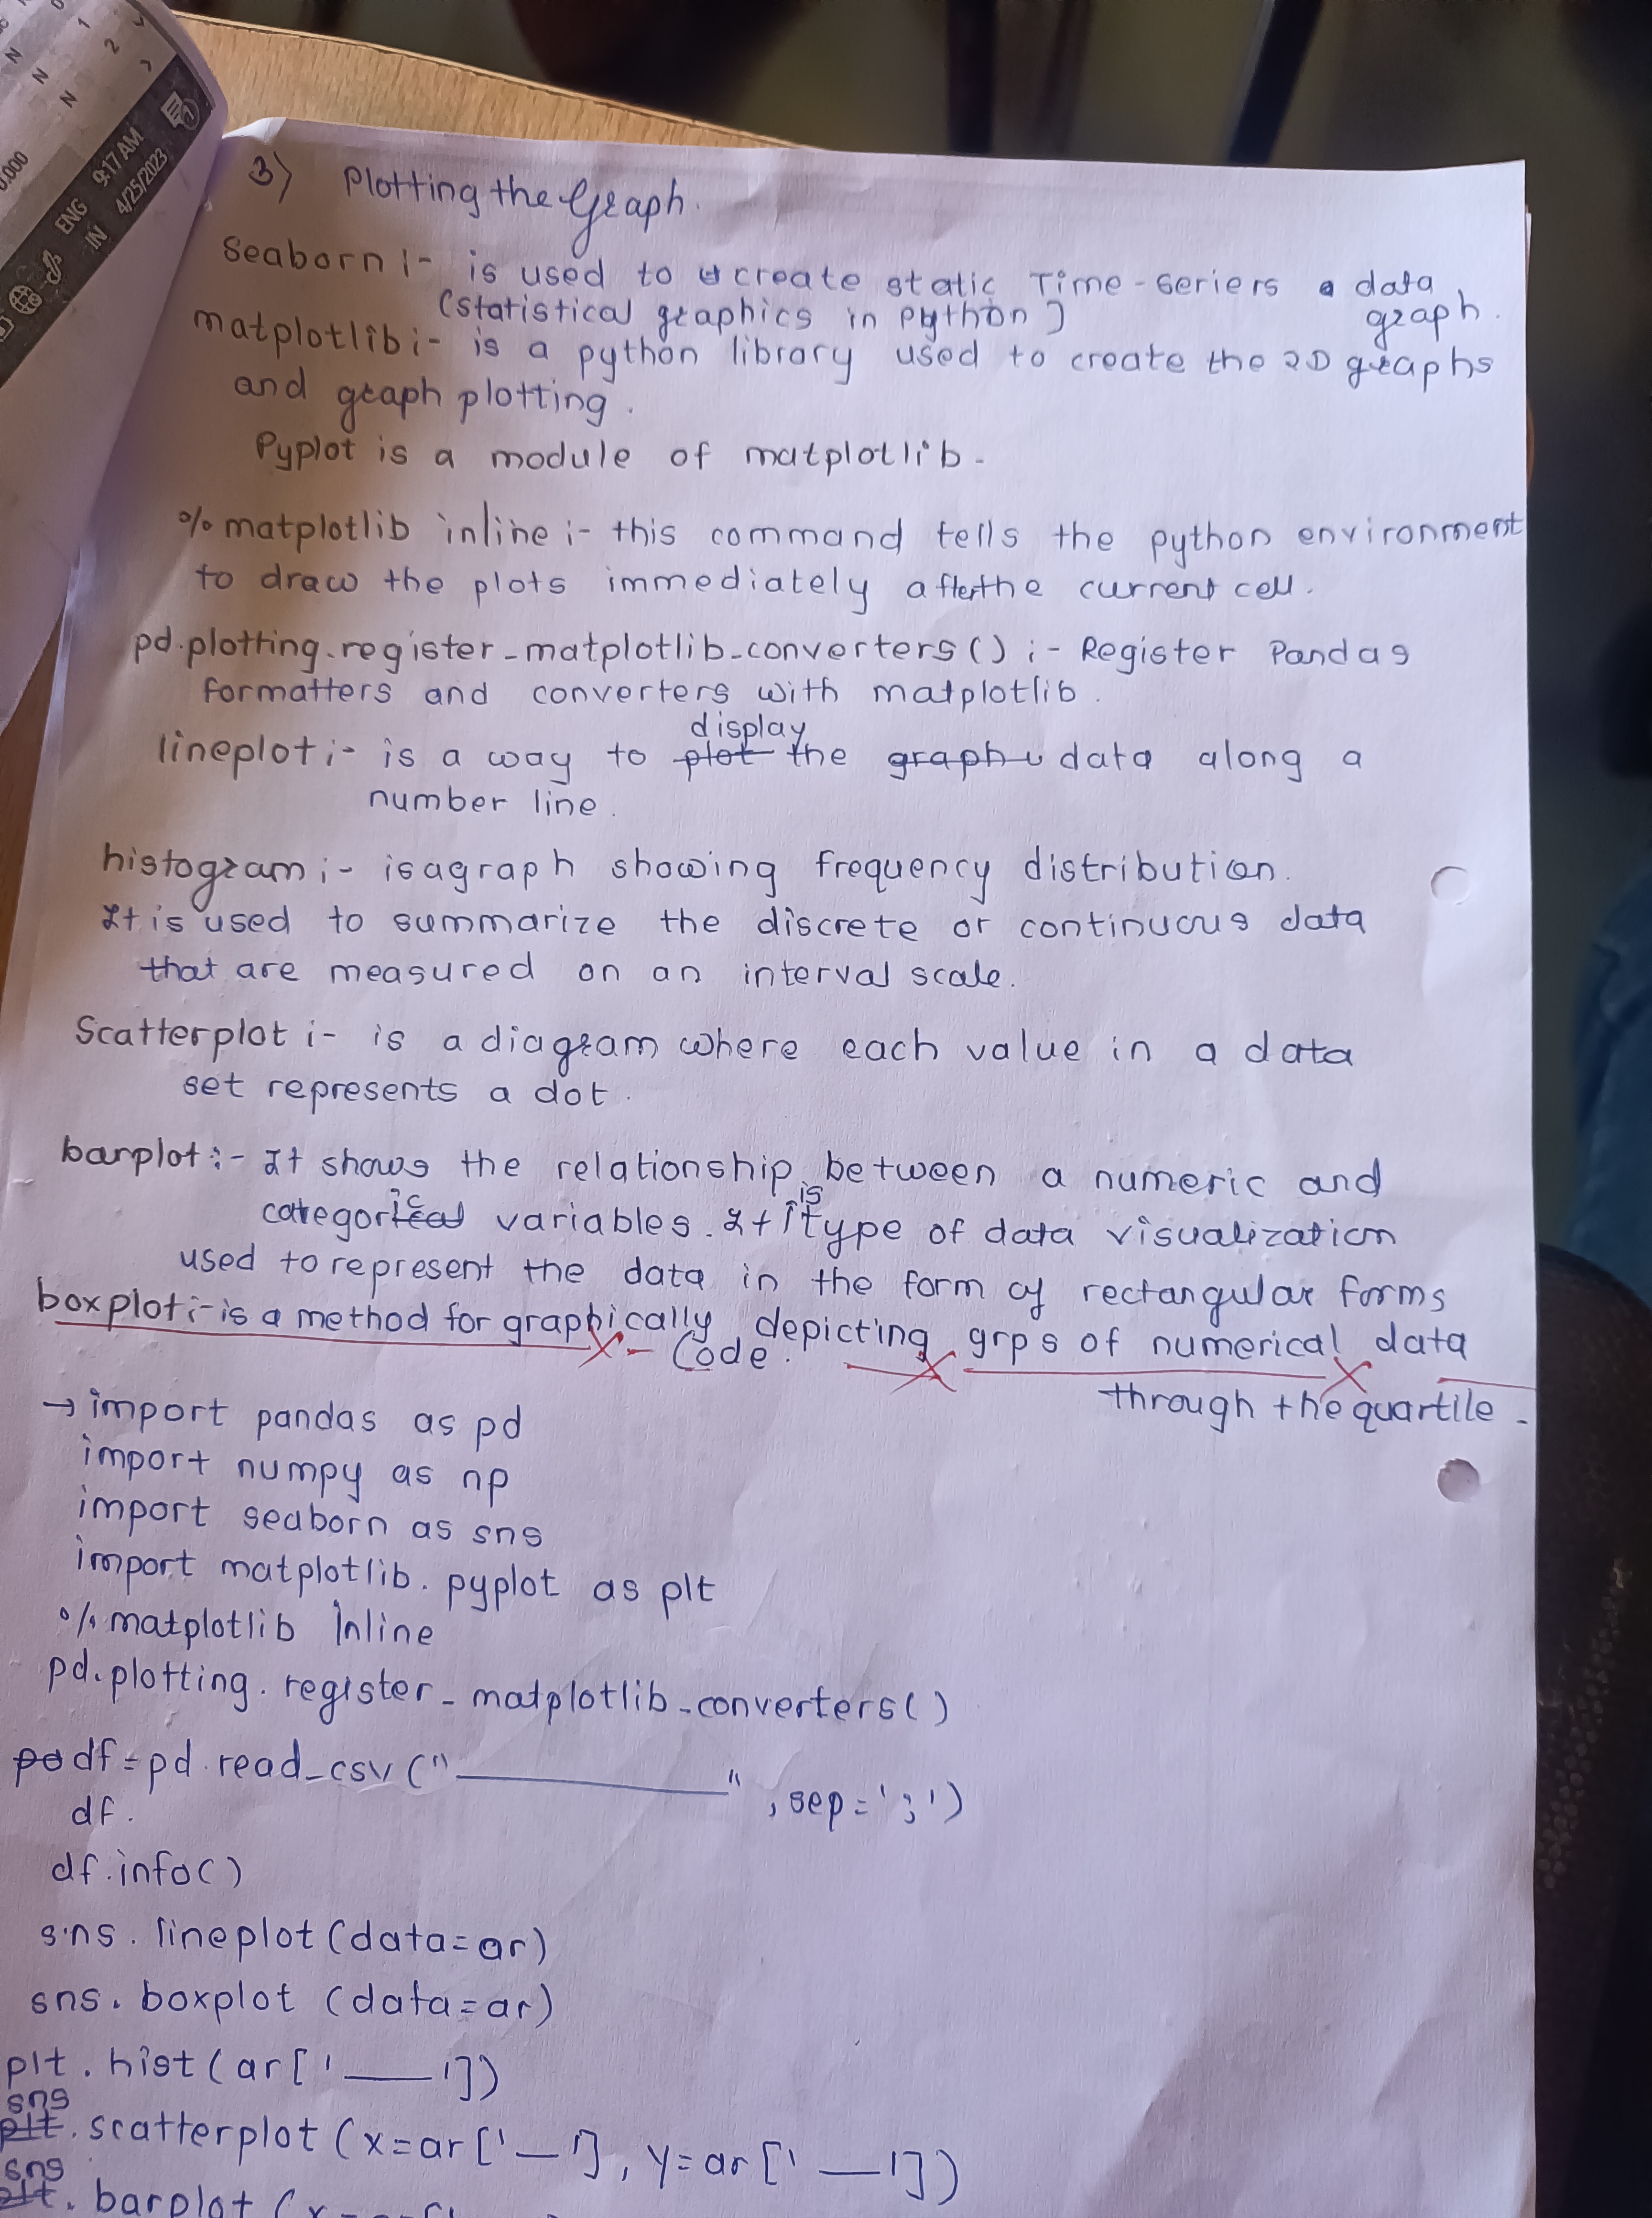 N
N
N
1
2
0.000
ENG
IN
9:17 AM
4/25/2023
3) Plotting the Graph.
Seaborn :- is used to create static Time-seriers data graph.
(statistical graphics in python)
matplotlib :- is a python library used to create the 2D graphs
and graph plotting.
Pyplot is a module of matplotlib.
% matplotlib inline :- this command tells the python environment
to draw the plots immediately after the current cell.
pd.plotting.register_matplotlib_converters() :- Register Pandas
formatters and converters with matplotlib.
lineplot :- is a way to plot display the graph data along a
number line.
histogram :- is a graph showing frequency distribution.
It is used to summarize the discrete or continuous data
that are measured on an interval scale.
Scatterplot :- is a diagram where each value in a data
set represents a dot.
barplot :- It shows the relationship between a numeric and
categoric variables. It is type of data visualization
used to represent the data in the form of rectangular forms
boxplot :- is a method for graphically depicting grps of numerical data
through the quartile.
Code.
→ import pandas as pd
import numpy as np
import seaborn as sns
import matplotlib.pyplot as plt
% matplotlib inline
pd.plotting.register_matplotlib_converters()
df = pd.read_csv("__________", sep=';')
df.
df.info()
sns.lineplot(data=ar)
sns.boxplot (data=ar)
plt.hist(ar['___'])
sns
plt.scatterplot (x=ar['_'], y=ar['_'])
sns
plt.barplot (x=